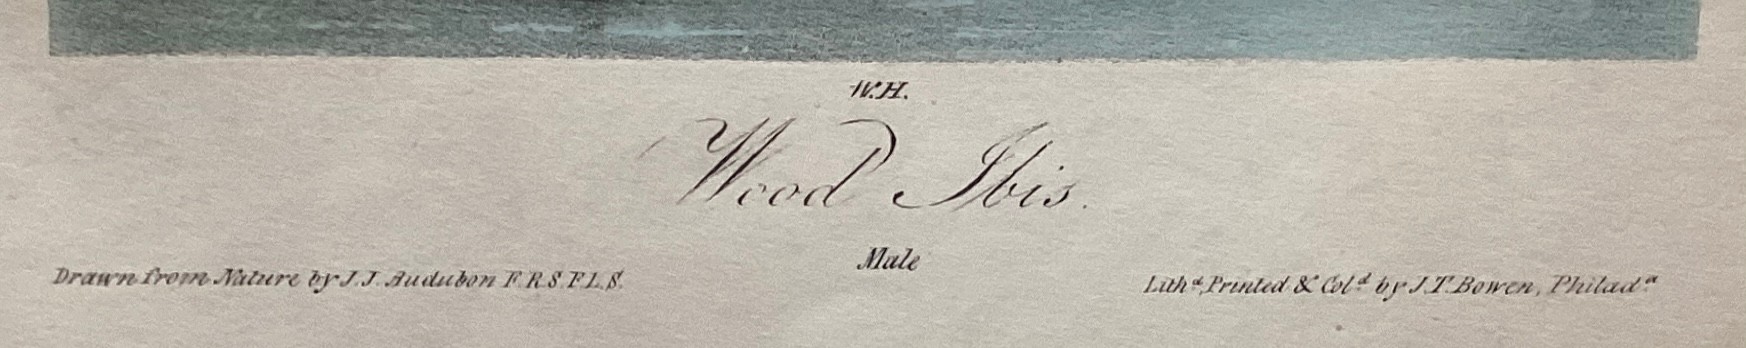 W.H.
Wood Ibis.
Male
Drawn from Nature by J.J. Audubon F.R.S.F.L.S.
Lithᵈ, Printed & Colᵈ by J.T. Bowen, Philadᵃ